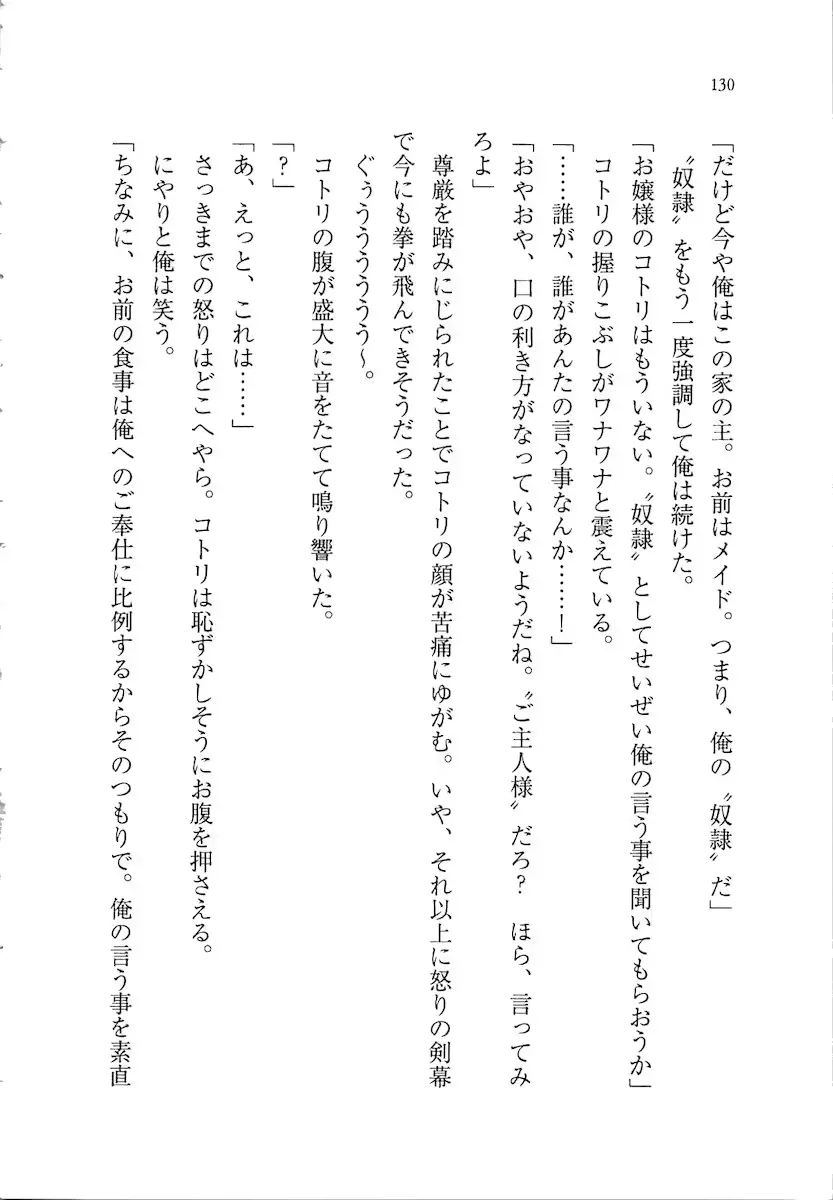 130
「だけど今や俺はこの家の主。お前はメイド。つまり、俺の〝奴隷〟だ」
〝奴隷〟をもう一度強調して俺は続けた。
「お嬢様のコトリはもういない。〝奴隷〟としてせいぜい俺の言う事を聞いてもらおうか」
コトリの握りこぶしがワナワナと震えている。
「……誰が、誰があんたの言う事なんか……！」
「おやおや、口の利き方がなっていないようだね。〝ご主人様〟だろ？　ほら、言ってみ
ろよ」
尊厳を踏みにじられたことでコトリの顔が苦痛にゆがむ。いや、それ以上に怒りの剣幕
で今にも拳が飛んできそうだった。
ぐぅうううううう～。
コトリの腹が盛大に音をたてて鳴り響いた。
「？」
「あ、えっと、これは……」
さっきまでの怒りはどこへやら。コトリは恥ずかしそうにお腹を押さえる。
にやりと俺は笑う。
「ちなみに、お前の食事は俺へのご奉仕に比例するからそのつもりで。俺の言う事を素直